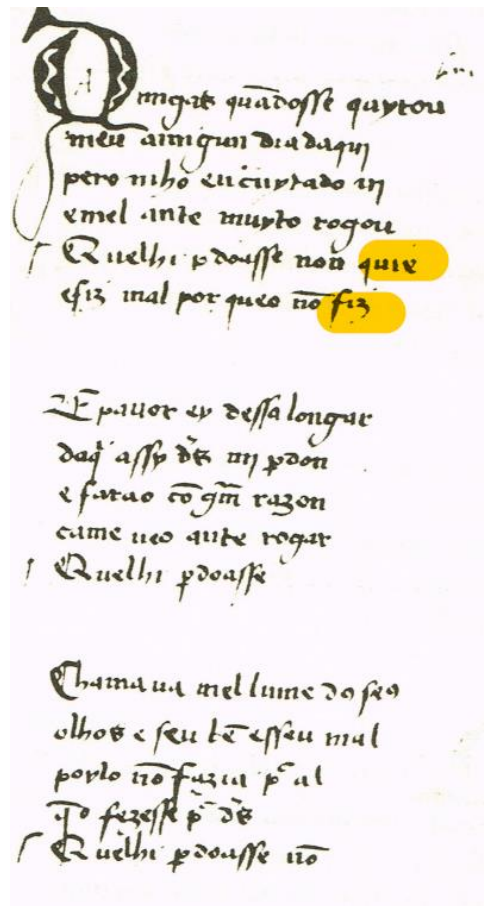 Amigas quãdosse quytou
meu amigun dia daqui
pero mho eu cuytado ui
emel ante muyto rogou
Quelhi pdoasse non quie
efiz mal por queo nõ fiz
E pauor ey dessa longar
daq̄ assy d's mi pdon
e farao cõ grã razon
came ueo ante rogar
Quelhi pdoasse
Chamaua mel lume dos seos
olhos e seu bẽ esseu mal
poylo nõ fazia p̄ al
q̄o fezesse p̄ d's
Quelhi pdoasse nõ